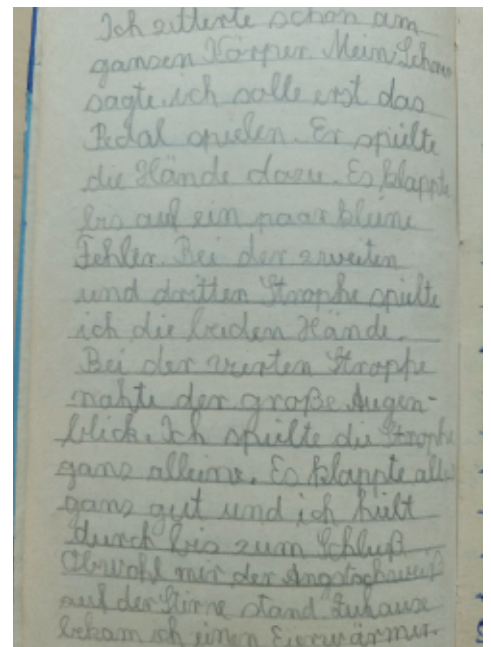 Ich zitterte schon am
ganzen Körper. Mein Lehrer
sagte, ich solle erst das
Pedal spielen. Er spielte
die Hände dazu. Es klappte
bis auf ein paar kleine
Fehler. Bei der zweiten
und dritten Strophe spielte
ich die beiden Hände.
Bei der vierten Stroppe
nahte der große Augen-
blick. Ich spielte die Strophe
ganz alleine. Es klappte alles
ganz gut und ich hielt
durch bis zum Schluß
Obwohl mir der Angstschweiß
auf der Stirne stand. Zuhause
bekam ich einen Eierwärmer.